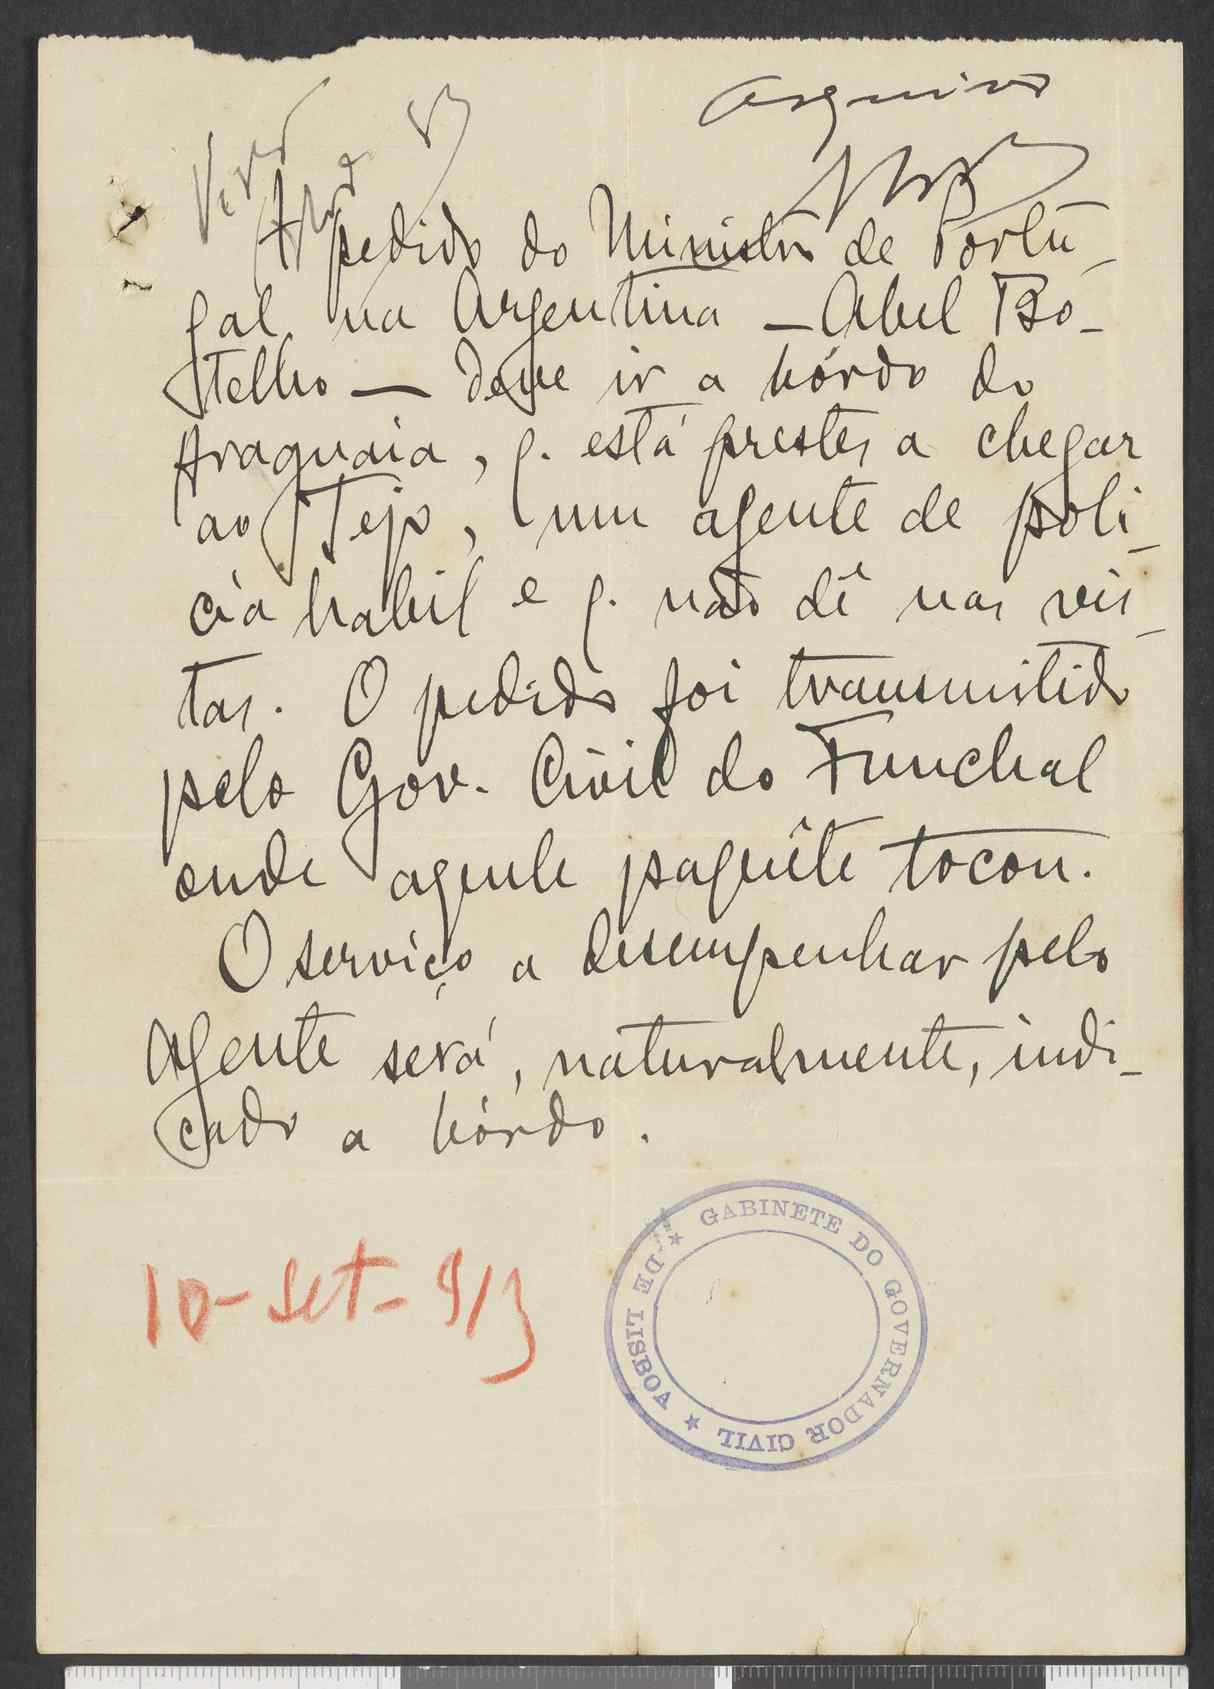 Arquivo
A pedido do Ministro de Portu-
gal na Argentina — Abel Bo-
telho — deve ir a bórdo do
Araguaia, q. está prestes a chegar
ao Tejo, um agente de poli-
cia habil e q. não dê nas vis-
tas. O pedido foi transmitido
pelo Gov. Civil do Funchal
onde aquele paquête tocou.
O serviço a desempenhar pelo
agente será, naturalmente, indi-
cado a bórdo.
10-Set-913
★ GABINETE DO GOVERNADOR CIVIL ★ DE LISBOA